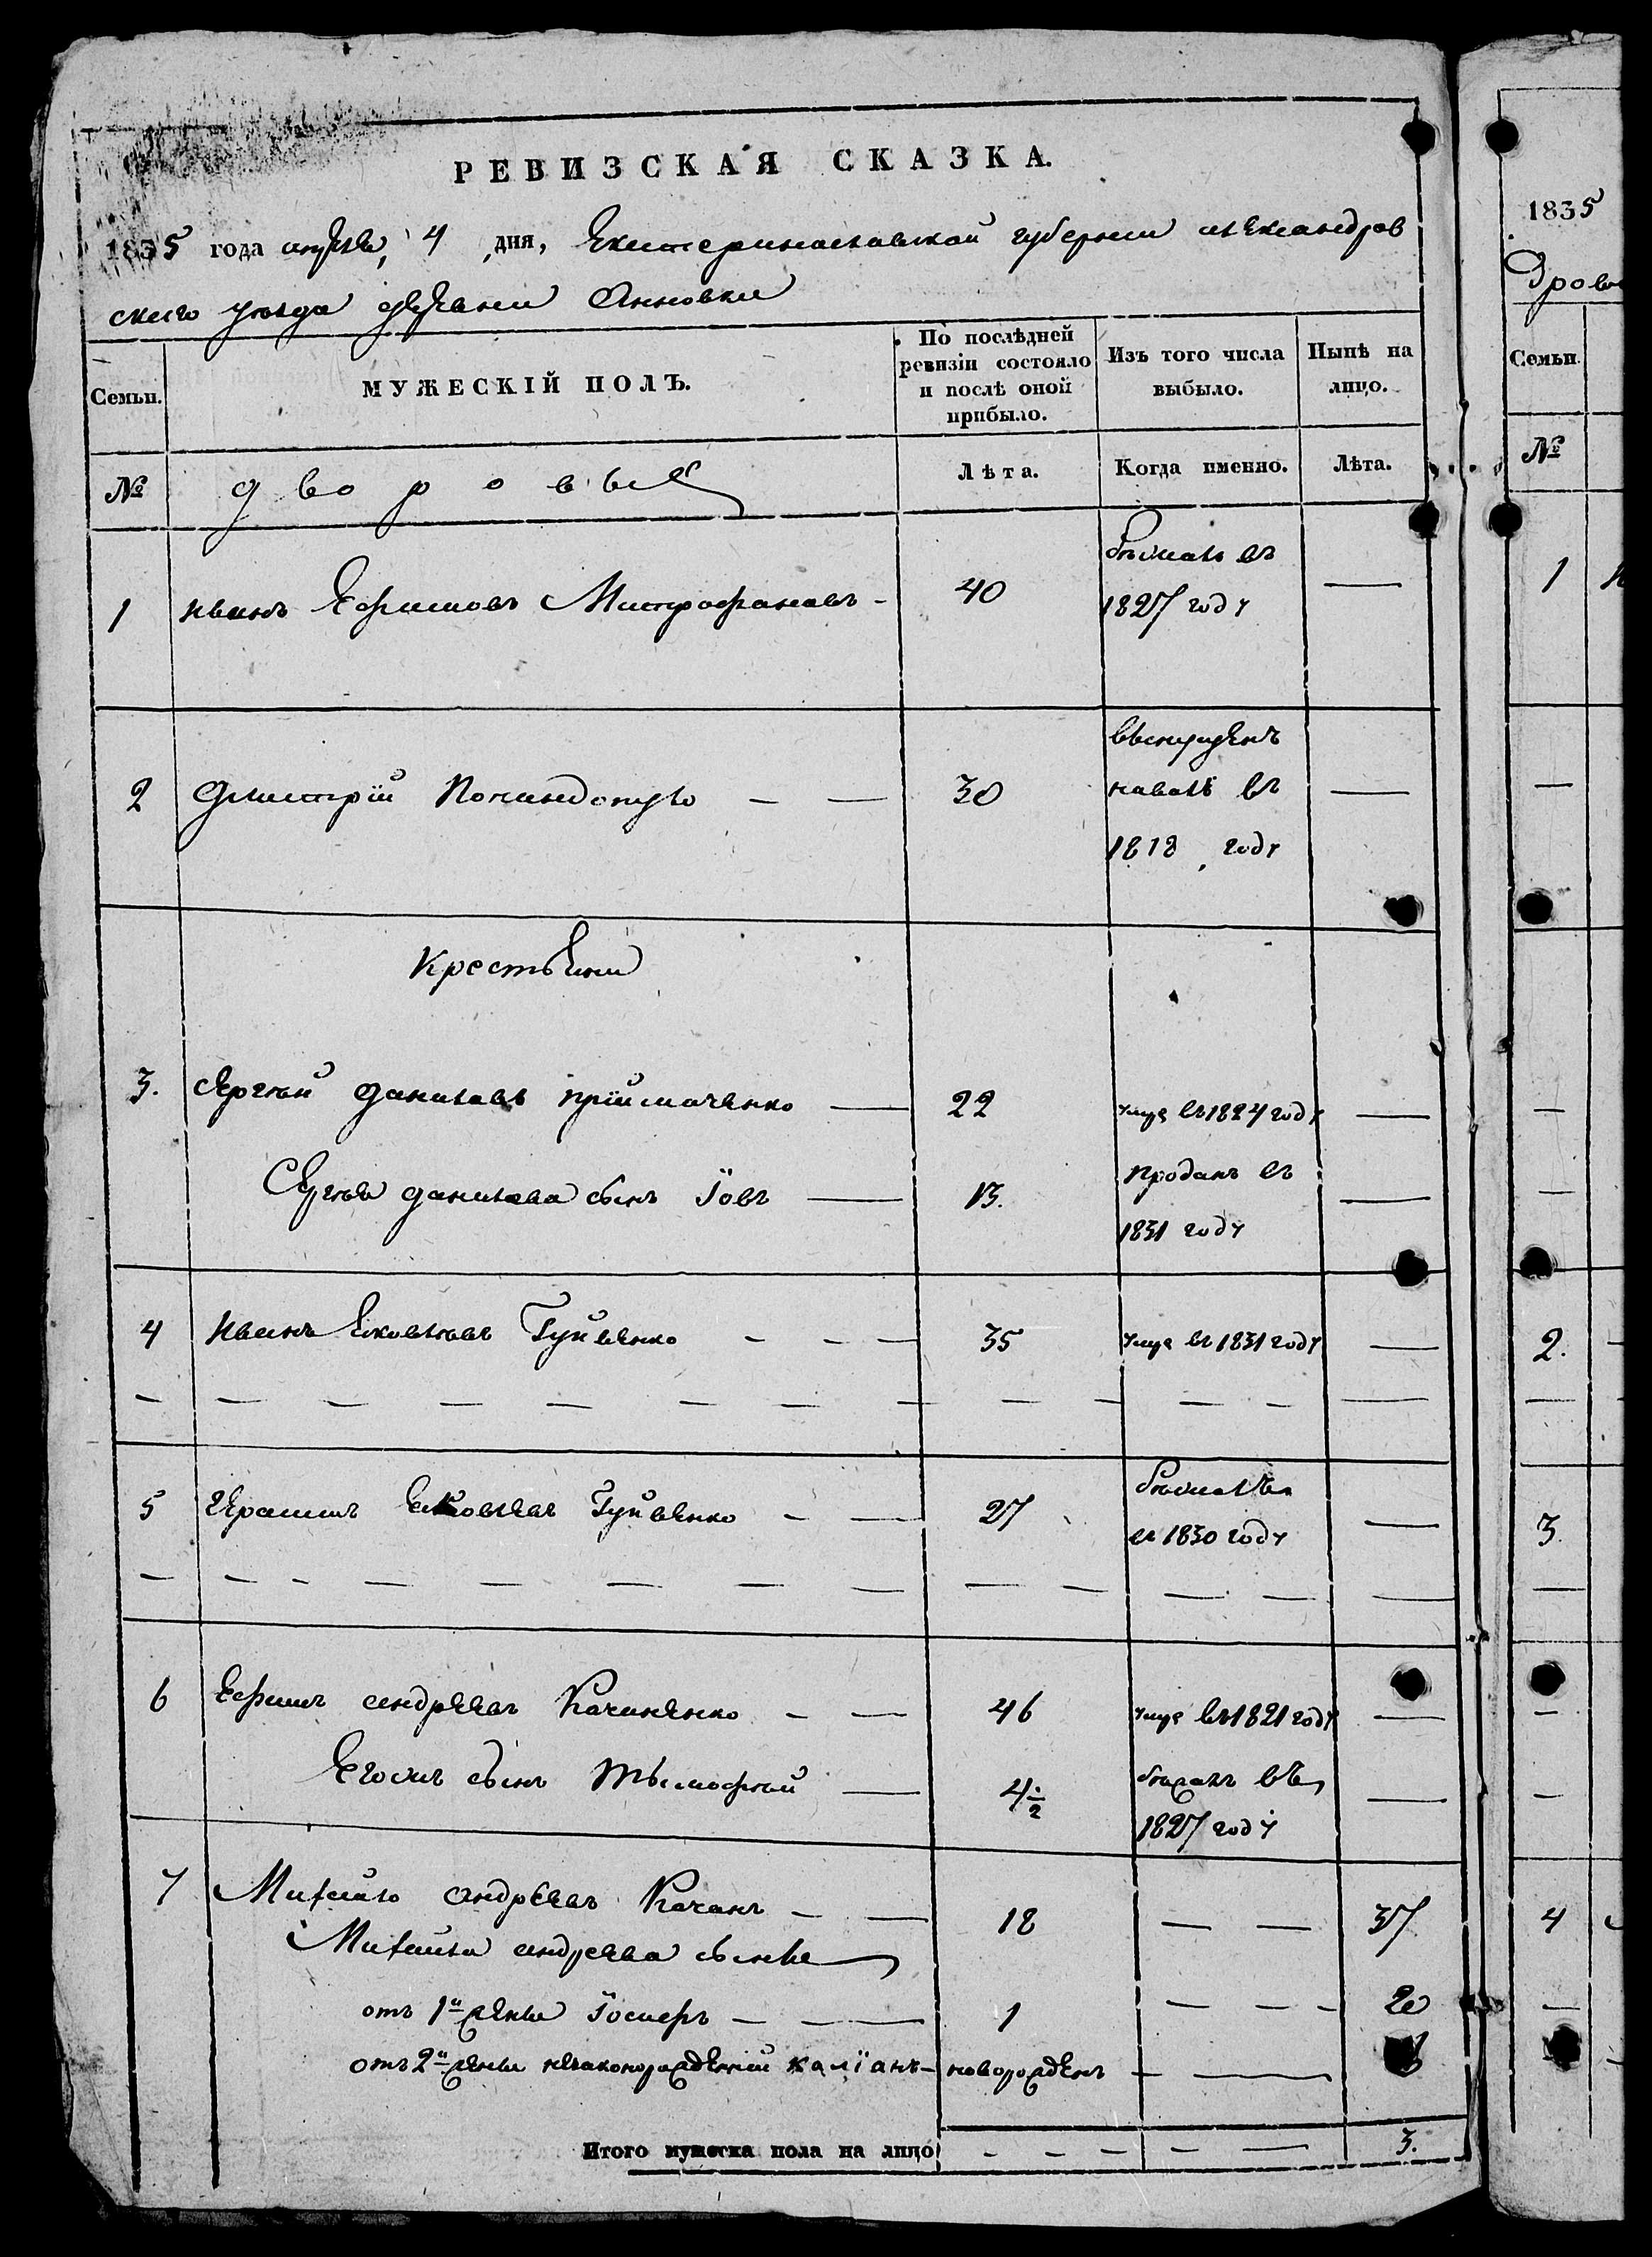 РЕВИЗСКАЯ СКАЗКА.
1835 года апреля, 4 дня, Екатеринославской губернии александров
ского уезда деревни Анновки
Семьи.
МУЖЕСКІЙ ПОЛЪ.
По послѣдней ревизіи состояло и послѣ оной прибыло.
Изъ того числа выбыло.
Нынѣ на лицо.
№ дворовые Лѣта. Когда именно. Лѣта.
1 иванъ Ефимовъ Митрофановъ - 40 бежалъ въ 1827 году —
2 дмитрій — — 30 въ 1818 году —
Крестьяни
3. сергѣй даниловъ пріймаченко — 22 умре въ 1824 году —
Сергѣя данилова сынъ Іовъ — 13. проданъ въ 1831 году —
4 иванъ яковлевъ — — — 35 умре въ 1831 году —
5 герасимъ яковлевъ — — 27 бежалъ въ 1830 году —
6 Ефимъ андреевъ Качаненко — — 46 умре въ 1821 году —
Егосмъ сынъ тымофѣй — 4 1/2 въ 1827 году —
7 Михайло андреевъ Качанъ — — 18 — — 37
Михайла андреева сынве
отъ 1й жены Іосифъ — — — 1 — — - 20
отъ 2й жены незаконорожденій каліанъ - новорожденъ — — 3
Итого мужеска пола на лицо — — — — — 3.
1835
Семьи.
№
1
2.
3.
4